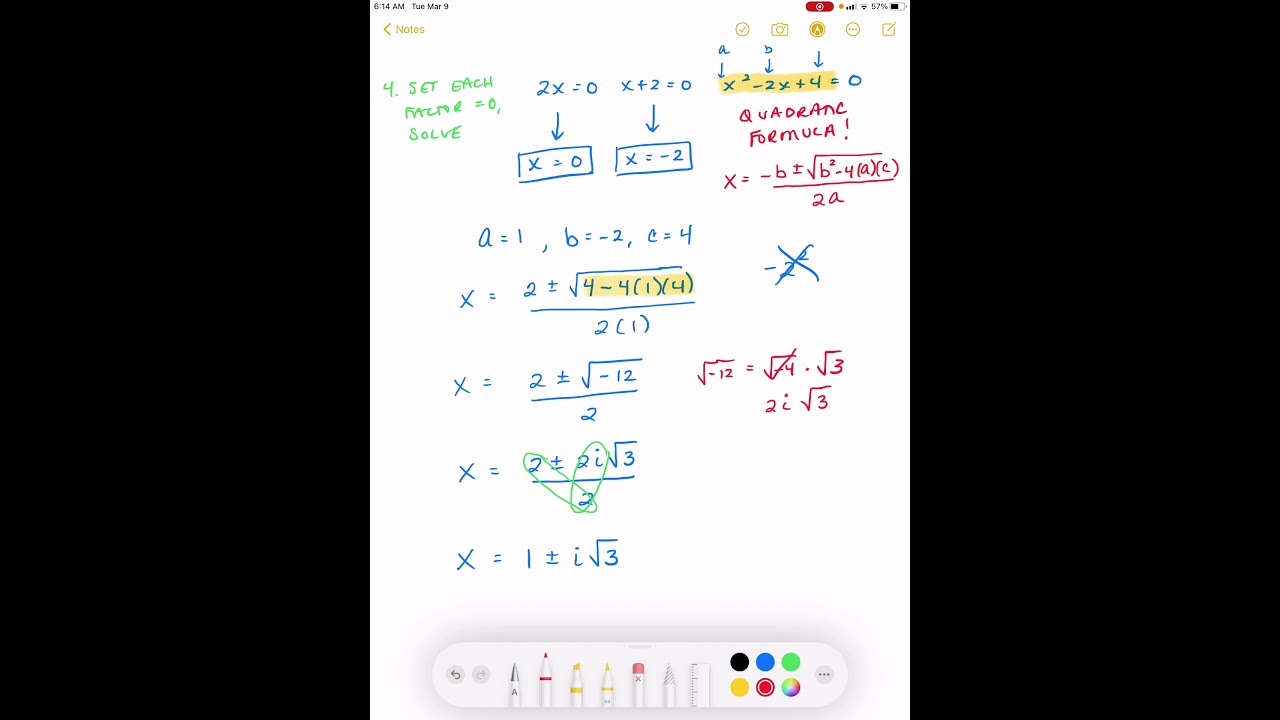 6:14 AM Tue Mar 9 57%
Notes
a b
4. SET EACH FACTOR = 0, SOLVE
2x = 0 x + 2 = 0 x² - 2x + 4 = 0
x = 0 x = -2
QUADRATIC
FORMULA!
x = (-b ± √(b² - 4(a)(c))) / 2a
a = 1 , b = -2, c = 4
-2²
x = (2 ± √(4 - 4(1)(4))) / 2(1)
x = (2 ± √-12) / 2
√-12 = √-4 · √3
2i √3
x = (2 ± 2i√3) / 2
x = 1 ± i√3
A